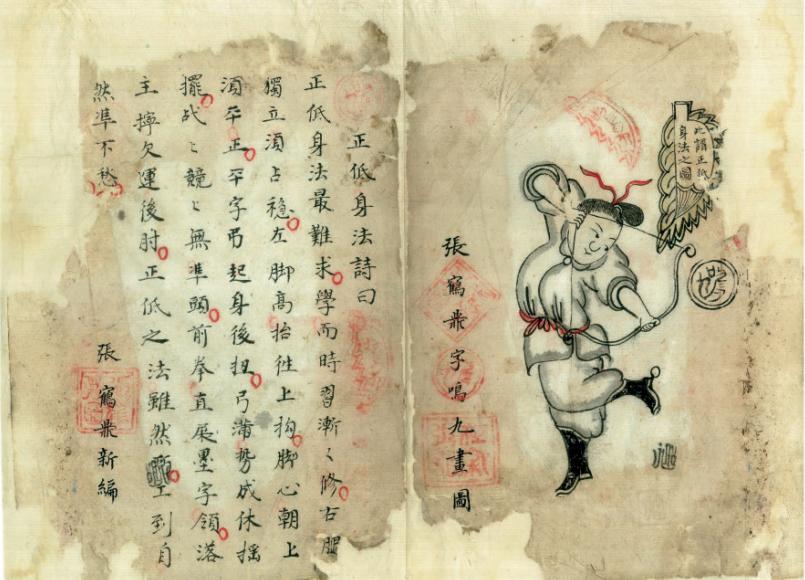 此謂正低
身法之圖
張鶱鼎字鳴九畫圖
正低身法詩曰
正低身法最難求學而時習漸々修右腿
獨立須占穩左脚高抬徃上拘脚心朝上
須平正平字弔起身後扭弓滿勢成休揺
擺战々競々無準頭前拳直展墨字領落
主擰欠運後肘正低之法雖然工到自
然準不愁
張鶱鼎新編